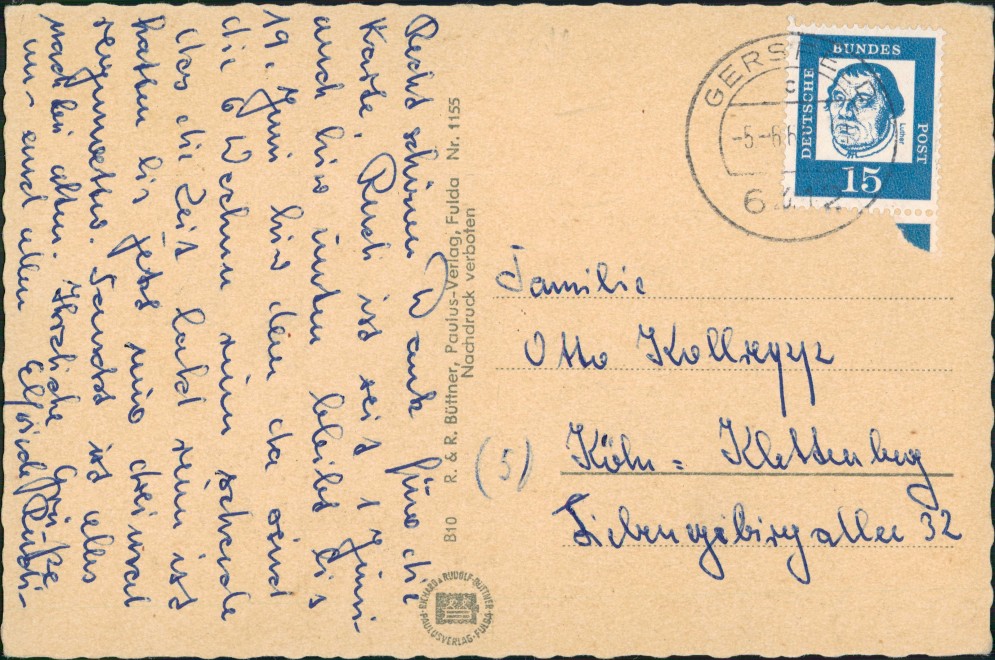 Recht schönen Dank für die
Karte. Rudi ist seit 1 Juni
auch hier unten bleibt bis
19. Juni hier denn da sind
die 6 Wochen rum schade
das die Zeit bald rum ist
hatten bis jetzt nur dreimal
regenwetter. Sonst ist alles
nach bei alten. Herzliche Grüße
an euch allen Elfriede Rudi
B10 R. & R. Büttner, Paulus-Verlag, Fulda Nr. 1155
Nachdruck verboten
RUDOLF BÜTTNER
PAULUSVERLAG · FULDA
GERSFE
-5.-6.6
DEUTSCHE
BUNDES
POST
Luther
15
Familie
Otto Kollrepp
(5) Köln = Klettenberg
Siebengebirgsallee 32